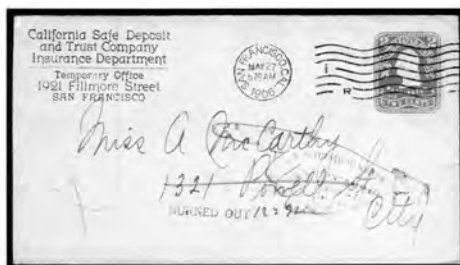 California Safe Deposit
and Trust Company
Insurance Department
Temporary Office
1921 Fillmore Street
SAN FRANCISCO
SAN FRANCISCO, CAL.
MAY 27
AM
1906
Miss A McCarthy
1321 Powell St
City
BURNED OUT